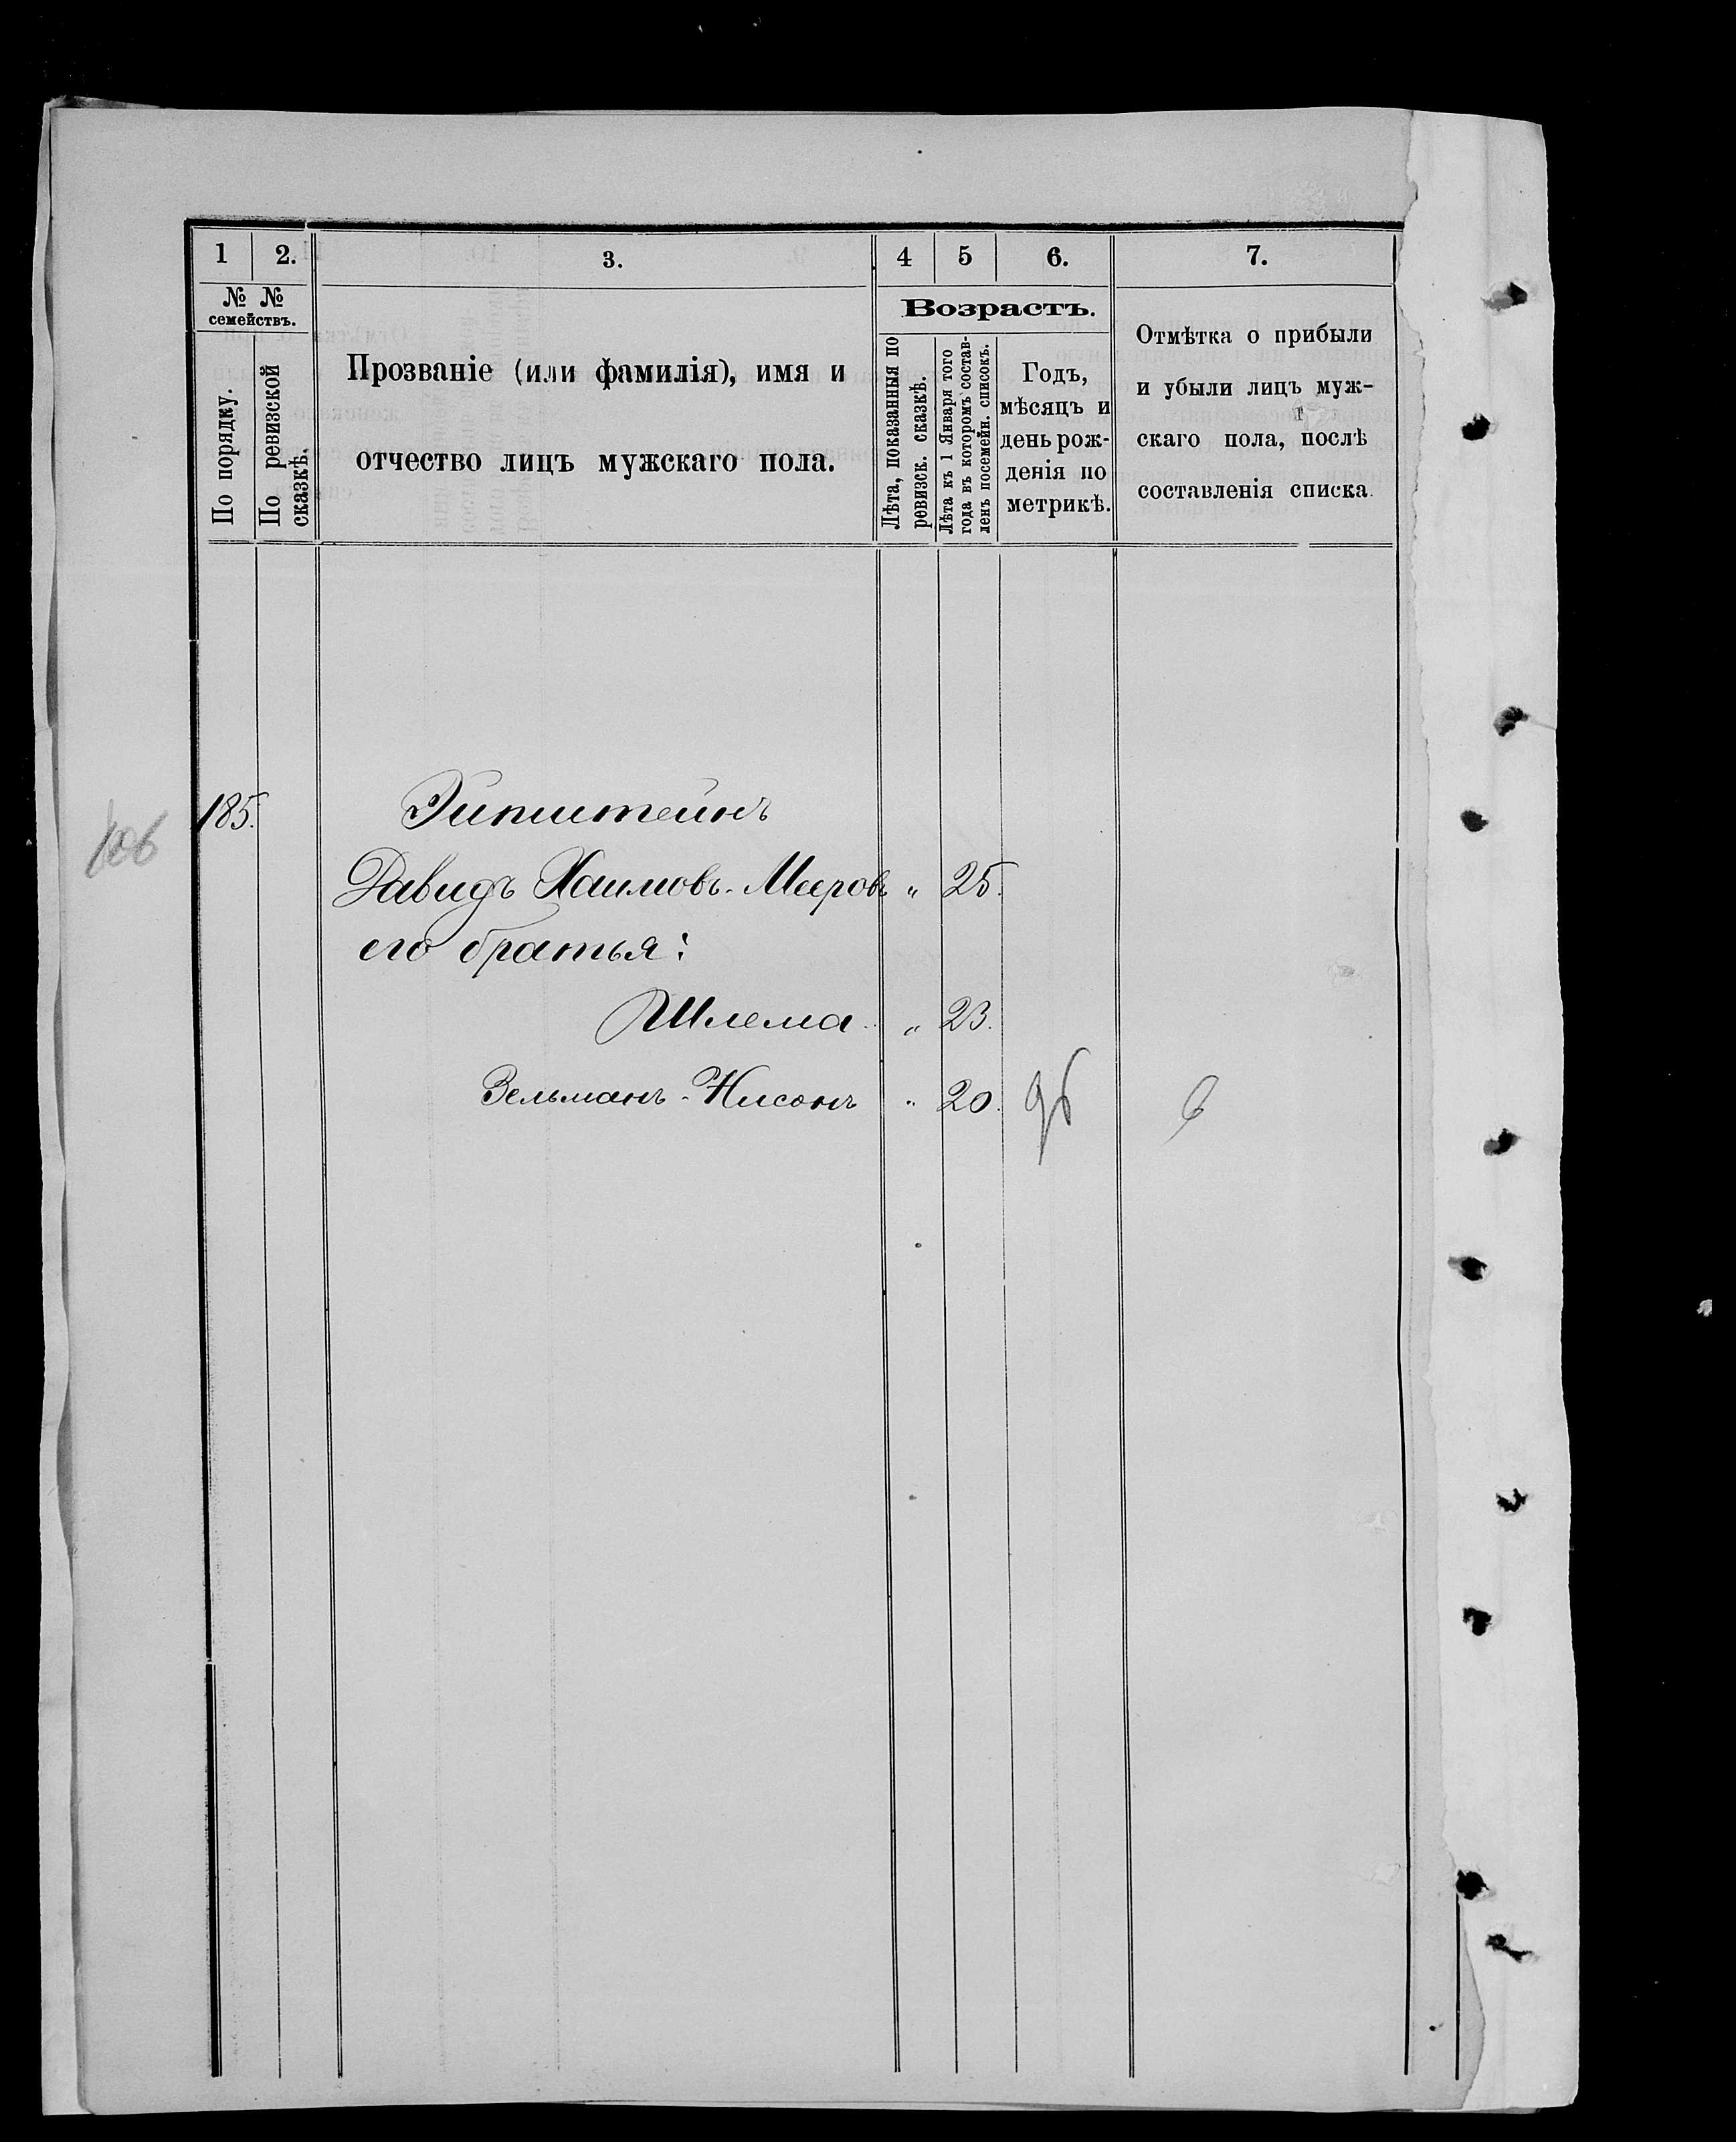 1 2. 3. 4 5 6. 7.
№ № семействъ.
По порядку.
По ревизской сказкѣ.
Прозваніе (или фамилія), имя и
отчество лицъ мужскаго пола.
Возрастъ.
Лѣта, показанныя по
ревизск. сказкѣ.
Лѣта къ 1 Января того
года въ которомъ состав-
ленъ посемейн. списокъ.
Годъ,
мѣсяцъ и
день рож-
денія по
метрикѣ.
Отмѣтка о прибыли
и убыли лицъ муж-
скаго пола, послѣ
составленія списка.
185. Эйпштейнъ
106
Давидъ Хаимовъ-Мееровъ " 25.
его братья:
Шлема " 23.
Зельманъ-Нисонъ " 20.